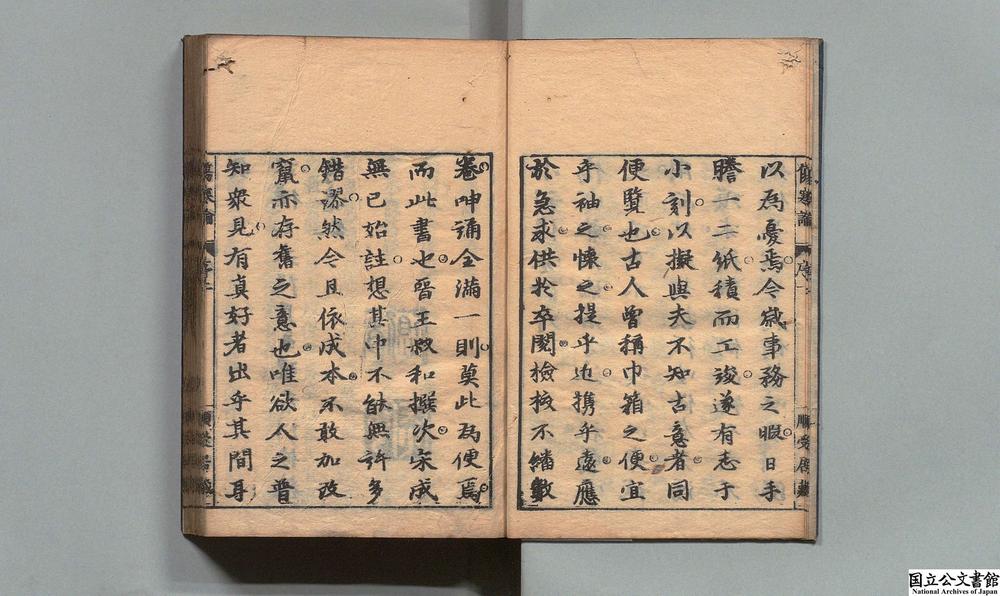 傷寒論
序二
順受居藏
以為憂焉今歲事務之暇日手
謄一二紙積而工竣遂有志于
小刻以擬與夫不知古意者同
便覽也古人曾稱巾箱之便宜
乎袖之懷之提乎近携乎遠應
於急求供於卒閱檢校不繙數
卷呻誦全滿一則莫此為便焉
而此書也晉王叔和撰次宋成
無已始註想其中不能無許多
錯謬然今且依成本不敢加改
竄亦存舊之意也唯欲人之普
知衆見有真好者出乎其間耳
傷寒論
國立公文書館
National Archives of Japan